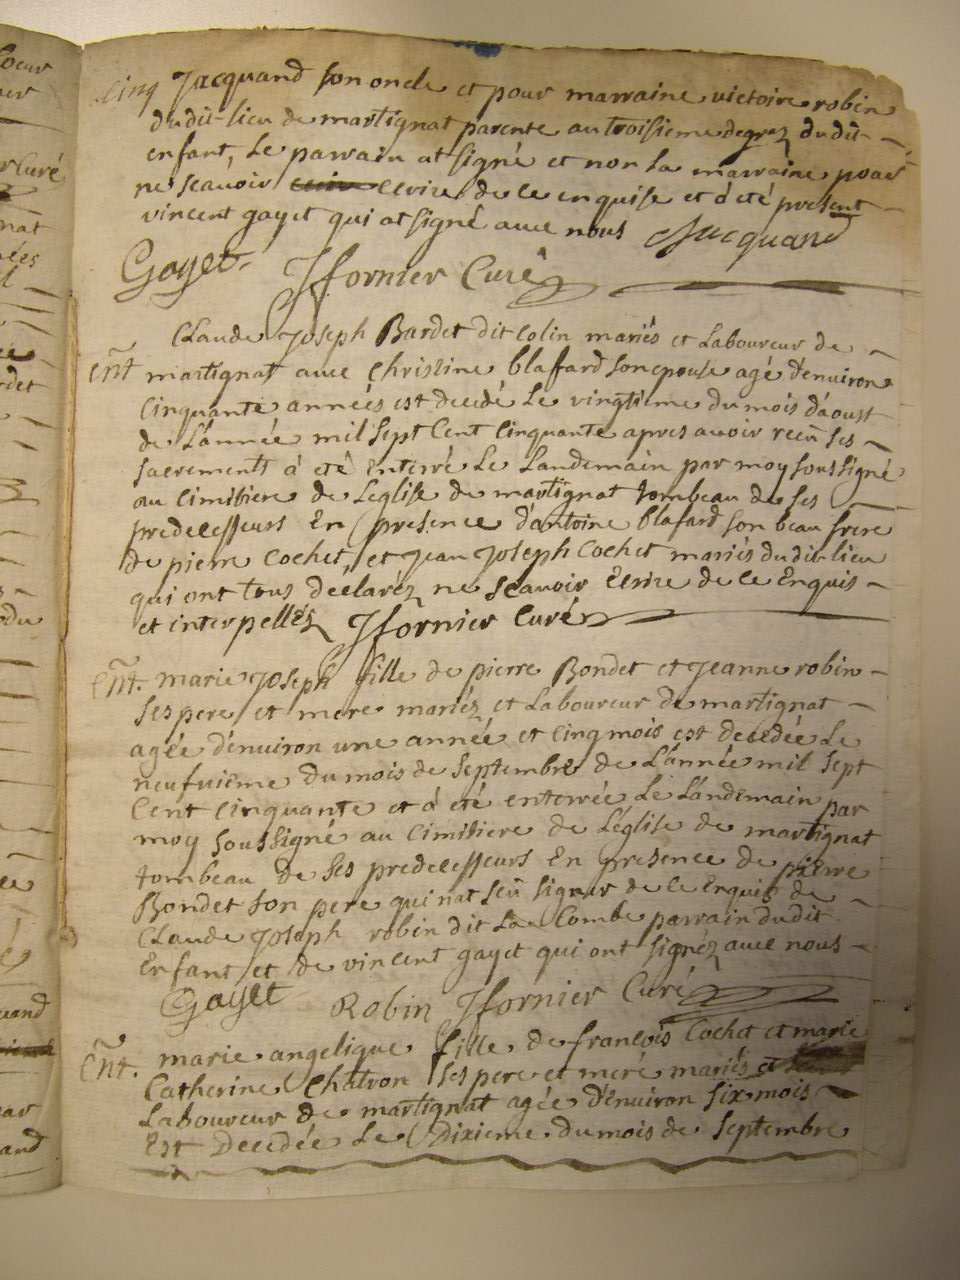 Cinq Jacquand son oncle et pour marraine victoire robin
dudit-lieu de martignat parente au troisieme degrez dudit
enfant, Le parrain at signé et non la marraine pour
ne scauoir ecrire de ce enquise et á été present
vincent gayet qui at signé auec nous Jacquand
Gayet J fornier Curé
Claude Joseph Bardet dit Colin mariés et Laboureur de
Ent martignat auec Christine blafard son epouse agé d'enuiron
Cinquante années est decedé Le vingtieme du mois d'áoust
de L'année mil sept Cent Cinquante apres auoir recu ses
sacrements á eté Enterré Le Landemain par moy soussigné
au Cimitiere de Leglise de martignat tombeau de ses
predecesseurs En presence d'antoine blafard son beau frere
de pierre Cochet, et Jean Joseph Cochet mariés dudit-lieu
qui ont tous declarez ne scauoir Ecrire de ce Enquis
et interpellez J fornier Curé
Ent. marie Joseph fille de pierre Bondet et Jeanne robin
ses pere et mere mariéz et Laboureur de martignat
agée d'enuiron une année et Cinq mois est decedée Le
neufuiéme du mois de septembre de L'année mil sept
Cent Cinquante et á eté enterrée Le Landemain par
moy soussigné au Cimitiere de L'eglise de martignat
tombeau de ses predecesseurs En presence de pierre
Bondet son pere qui nat seu signer de ce Enquis de
Claude Joseph robin dit La Combe parrain dudit
Enfant et de vincent gayet qui ont signéz auec nous
Gayet Robin J fornier Curé
Ent. marie angelique fille de francois Cochet et marie
Catherine Chatron ses pere et mere mariés et
Laboureur de martignat agée d'enuiron six mois
Est Decedée Le Dixieme du mois de septembre